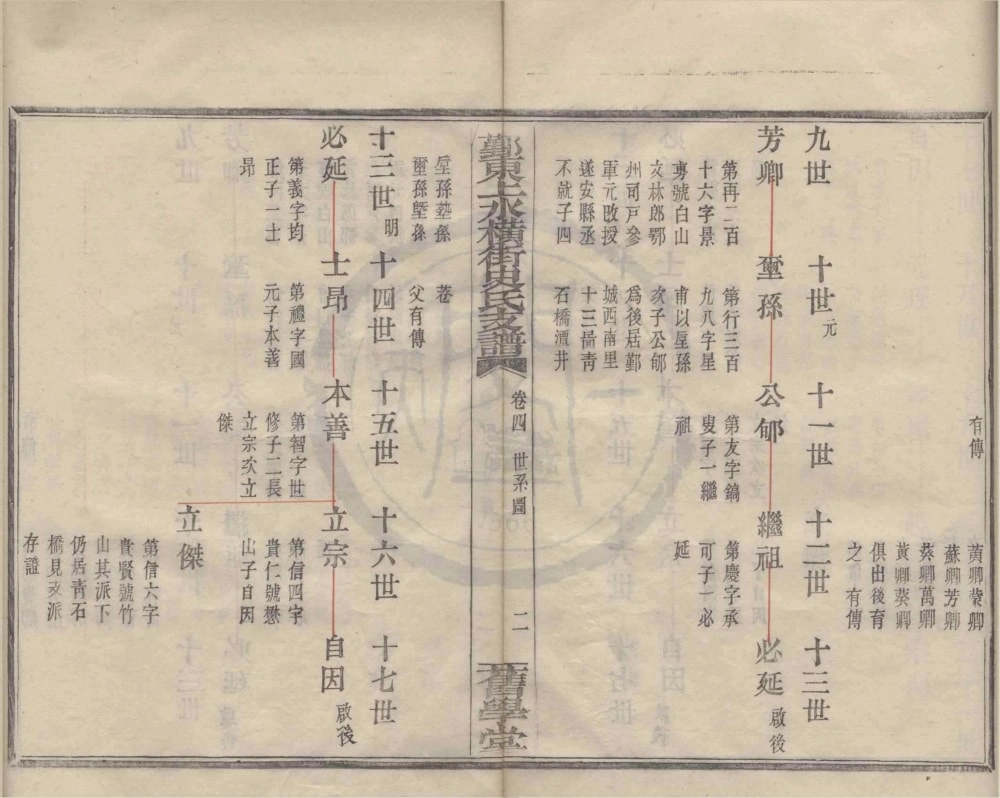 有傳
黃卿棠卿
蘇卿芳卿
葵卿萬卿
俱出後育
之有傳
九世
十世元
十一世
十二世
十三世
芳卿
璽孫
公郇
繼祖
必延啟後
第再二百
十六字景
專號白山
文林郎鄂
州司戶參
軍元敗授
遂安縣丞
不就子四
第行三百
九八字星
甫以垕孫
次子公郇
為後居鄞
城西南里
十三啚靑
石橋潭井
第友字鎬
叟子一繼
祖
第慶字承
可子一必
延
鄞東上水橫街史氏支譜
卷四
世系圖
二一
舊學堂
垕孫塾孫
璽孫墍孫
卷
父有傳
十三世明
十四世
十五世
十六世
十七世
必延
士昂
本善
立宗
自因啟後
第義字均
正子一士
昂
第禮字國
元子本善
第智字世
修子二長
立宗次立
傑
第信四字
貴仁號懋
山子自因
立傑
第信六字
貴賢號竹
山其派下
仍居靑石
橋見支派
存證